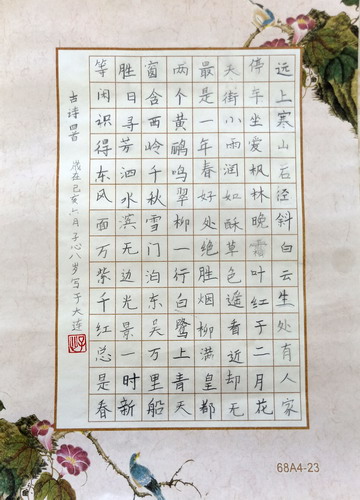 远上寒山石径斜白云生处有人家
停车坐爱枫林晚霜叶红于二月花
天街小雨润如酥草色遥看近却无
最是一年春好处绝胜烟柳满皇都
两个黄鹂鸣翠柳一行白鹭上青天
窗含西岭千秋雪门泊东吴万里船
胜日寻芳泗水滨无边光景一时新
等闲识得东风面万紫千红总是春
古诗四首 岁在己亥六月子心八岁写于大连
68A4-23